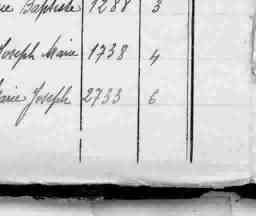 Baptiste 1288 3
Joseph Marie 1738 4
Marie Joseph 2733 6